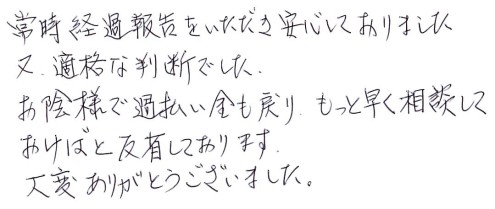 常時経過報告をいただき安心しておりました
又、適格な判断でした。
お陰様で過払い金も戻り、もっと早く相談して
おけばと反省しております。
大変ありがとうございました。